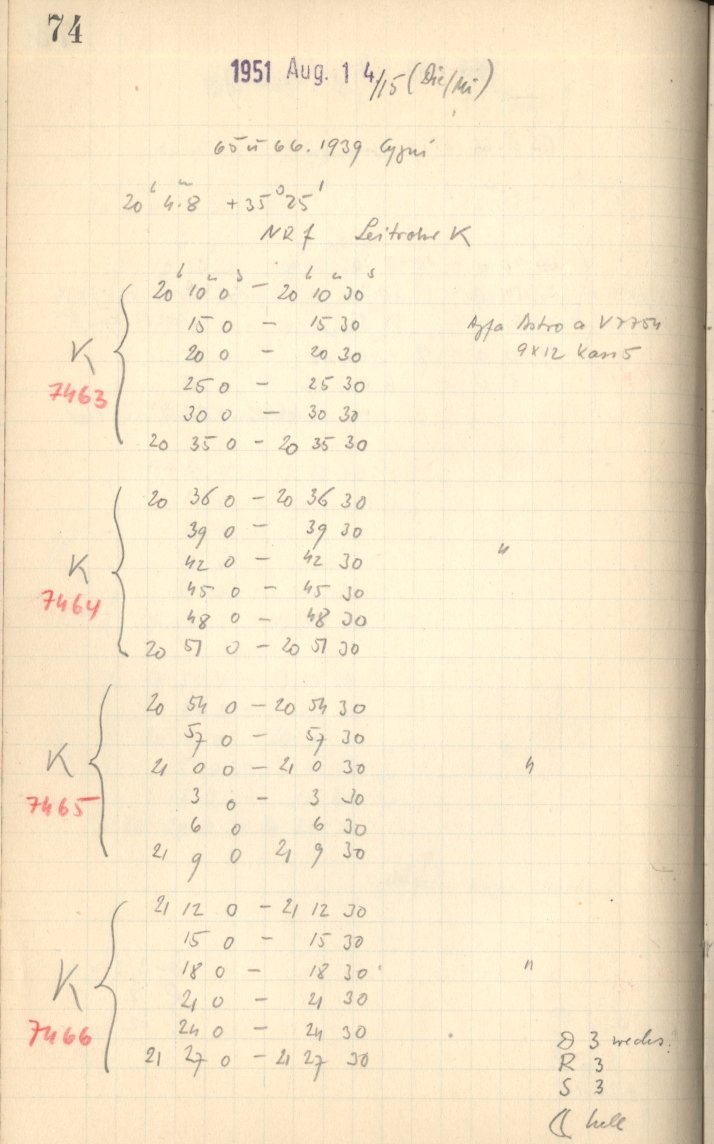 74
1951 Aug. 14/15 (Die/Mi)
65 u 66.1939 Cygni
20h 4m.8 +35° 25'
NR f Leitrohr K
20h 10m 0s - 20h 10m 30s
15 0 - 15 30
Agfa Astro a V7754
K 20 0 - 20 30
9x12 Kass 5
7463 25 0 - 25 30
30 0 - 30 30
20 35 0 - 20 35 30
20 36 0 - 20 36 30
39 0 - 39 30
K 42 0 - 42 30 "
7464 45 0 - 45 30
48 0 - 48 30
20 51 0 - 20 51 30
20 54 0 - 20 54 30
57 0 - 57 30
K 21 0 0 - 21 0 30 "
7465 3 0 - 3 30
6 0 6 30
21 9 0 21 9 30
21 12 0 - 21 12 30
15 0 - 15 30
K 18 0 - 18 30 "
21 0 - 21 30
7466 24 0 - 24 30
21 27 0 - 21 27 30
D 3 wechs.
R 3
S 3
☾ hell